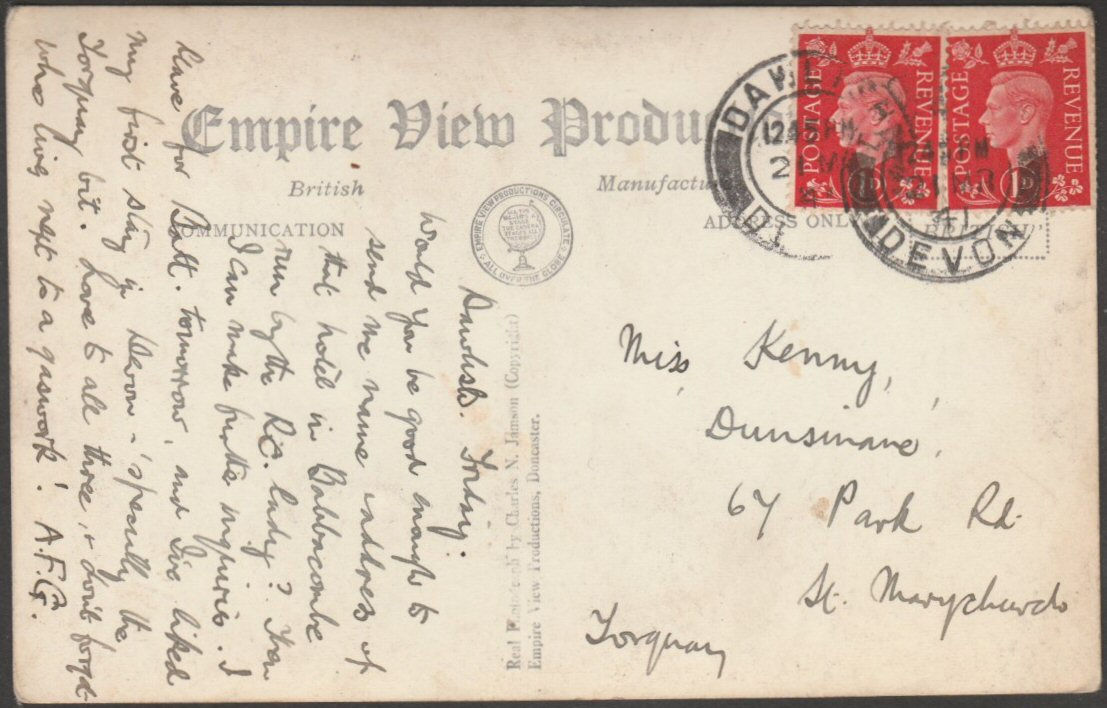 Empire View Produ
British Manufactu
COMMUNICATION ADDRESS ONLY
EMPIRE VIEW PRODUCTIONS CIRCULATE
ALL OVER THE GLOBE
DAWLISH
12 PM
DEVON
POSTAGE REVENUE
1D
POSTAGE REVENUE
1D
Real Photograph by Charles N. Jamson (Copyright)
Empire View Productions, Doncaster.
Dawlish. Friday.
Would you be good enough to
send me name & address of
that hotel in Babbacombe
run by the R.C. lady? Then
I can make further inquiries. I
leave for Batt. tomorrow, and I've liked
my first stay in Devon - 'specially the
Torquay bit. Love to all three, & don't forget
who lives next to a gaswork! A.F.G.
Miss Kenny,
Dunsinane,
67 Park Rd.
St. Marychurch
Torquay